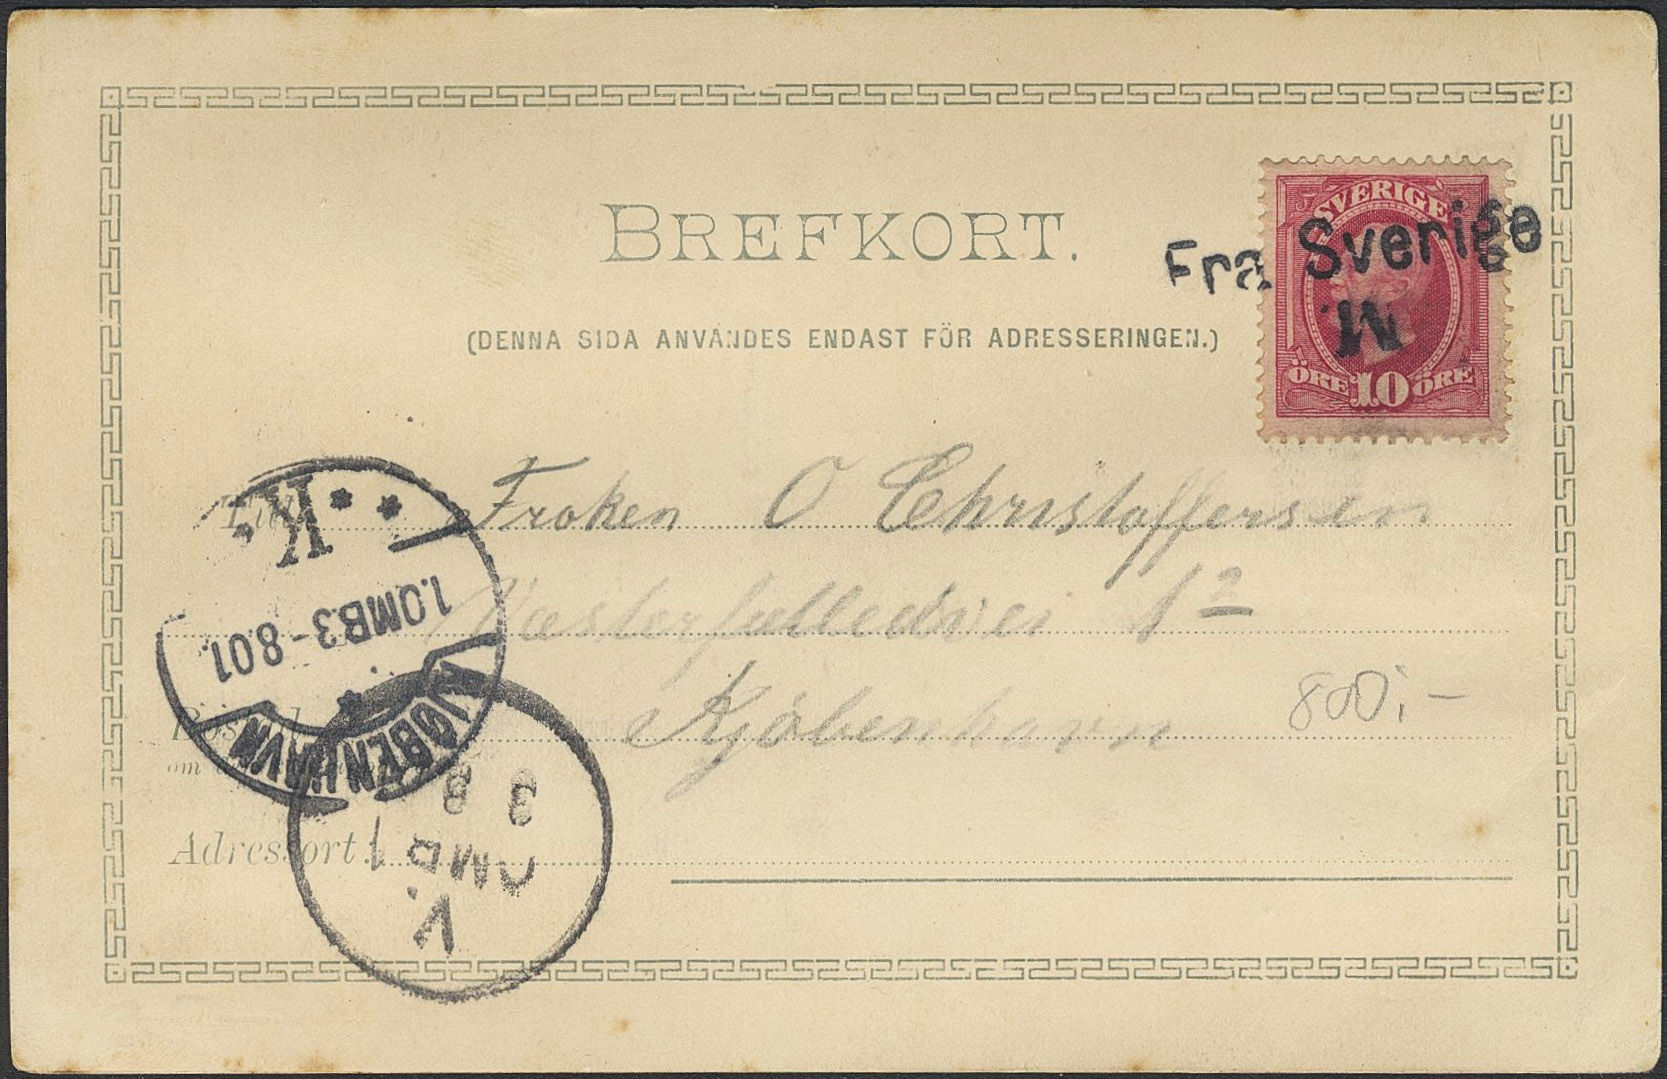 BREFKORT.
(DENNA SIDA ANVÄNDES ENDAST FÖR ADRESSERINGEN.)
SVERIGE
ÖRE 10 ÖRE
Fra Sverige
M
Till
Froken O Christoffersen
Vesterfælledvei 12
Kjöbenhavn
800:-
Adressort
K.
1.OMB.3-8.01.
KJØBENHAVN
3 8
OMB 1
V.